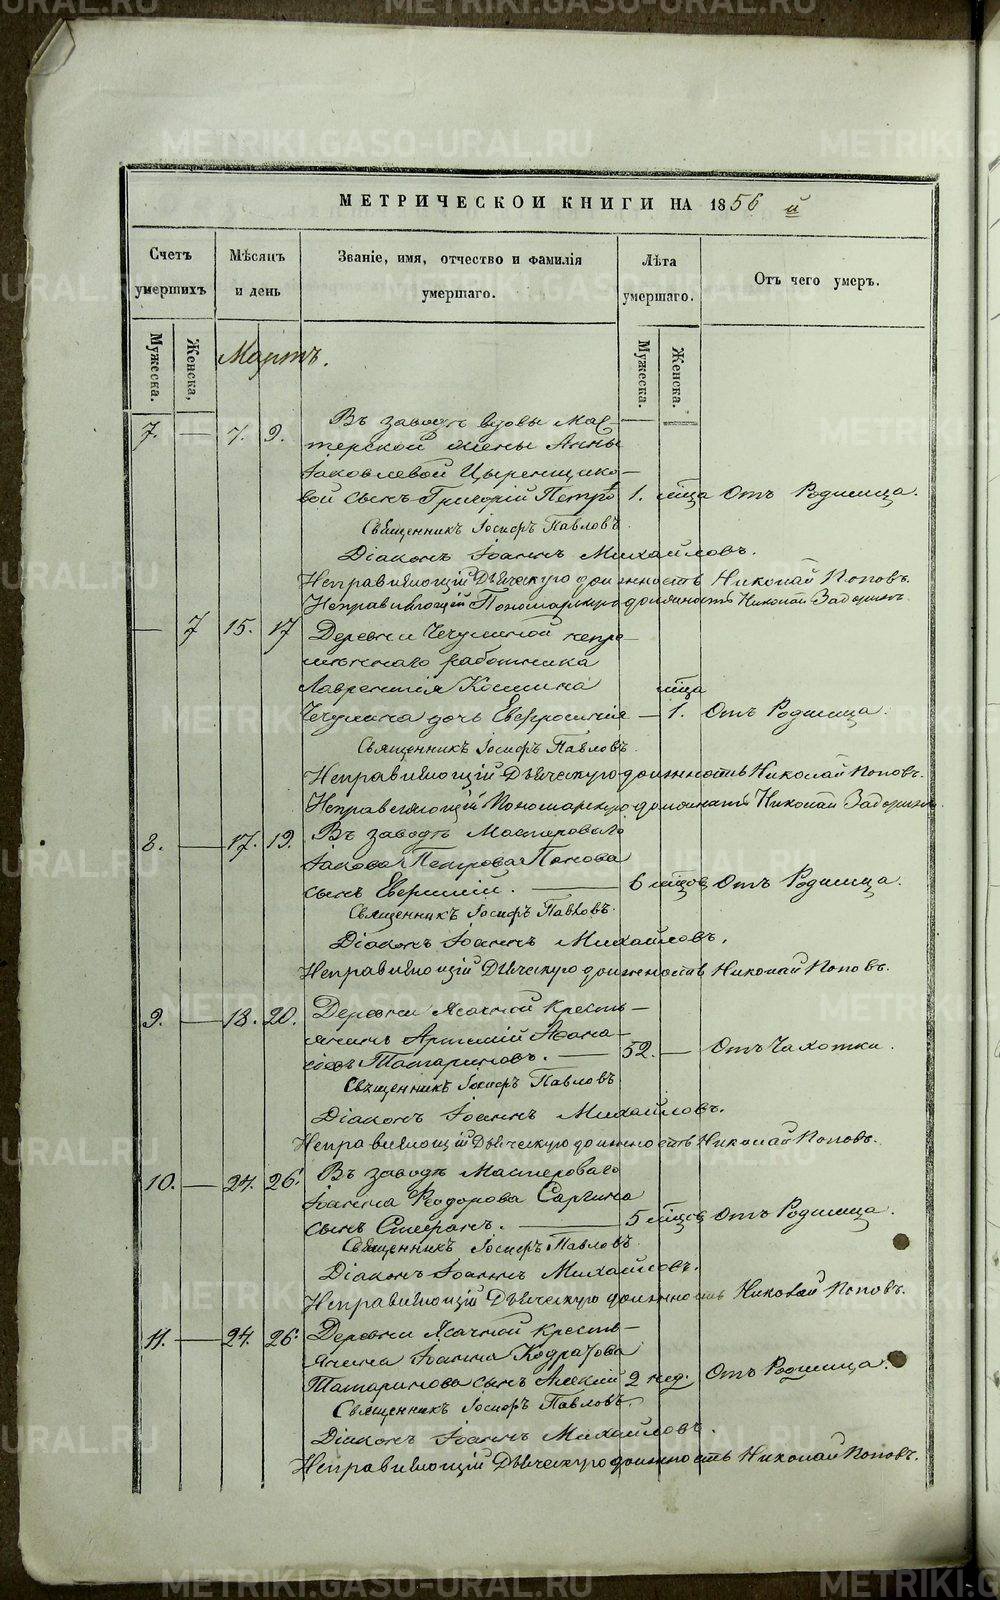 METRIKI.GASO-URAL.RU
МЕТРИЧЕСКОЙ КНИГИ НА 1856 й
Счетъ умершихъ
Мѣсяцъ и день
Званіе, имя, отчество и фамилія умершаго.
Лѣта умершаго.
Отъ чего умеръ.
Мужеска.
Женска,
Мужеска.
Женска.
Мартъ.
7. — 7. 9. Въ заводѣ вдовы мас-
терской жены Анны
Іаковлевой
вой сынъ Григорій Петро 1. мѣца Отъ Родимца.
Священникъ Іосифъ Павловъ
Діаконъ Іоаннъ Михайловъ.
Исправляющій Дьяческую должность Николай Поповъ.
Исправляющій Пономарскую должность Николай
— 7 15. 17 Деревни Чечулиной непре-
мѣннаго работника
Лаврентія Космина мѣца
Чечулина дочь Евфросинія — 1. Отъ Родимца.
Священникъ Іосифъ Павловъ
Исправляющій Дьяческую должность Николай Поповъ.
Исправляющій Пономарскую должность Николай
8. — 17. 19. Въ заводѣ Мастероваго
Іакова Петрова Попова
сынъ Евгеній. — 6 мѣцовъ Отъ Родимца.
Священникъ Іосифъ Павловъ.
Діаконъ Іоаннъ Михайловъ.
Исправляющій Дьяческую должность Николай Поповъ.
9. — 18. 20. Деревни Ясачной Кресть-
янинъ Артемій Афана-
сіевъ Татариновъ. — 52. — Отъ Чахотки.
Священникъ Іосифъ Павловъ
Діаконъ Іоаннъ Михайловъ.
Исправляющій Дьяческую должность Николай Поповъ.
10. — 24. 26. Въ заводѣ Мастероваго
Іоанна Феодорова Саргина
сынъ Стефанъ. — 5 мѣцовъ Отъ Родимца.
Священникъ Іосифъ Павловъ
Діаконъ Іоаннъ Михайловъ.
Исправляющій Дьяческую должность Николай Поповъ.
11. — 24. 26. Деревни Ясачной Кресть-
янина Іоанна Кодратова
Татаринова сынъ Алексій 2 нед. Отъ Родимца.
Священникъ Іосифъ Павловъ.
Діаконъ Іоаннъ Михайловъ.
Исправляющій Дьяческую должность Николай Поповъ.
METRIKI.GASO-URAL.RU